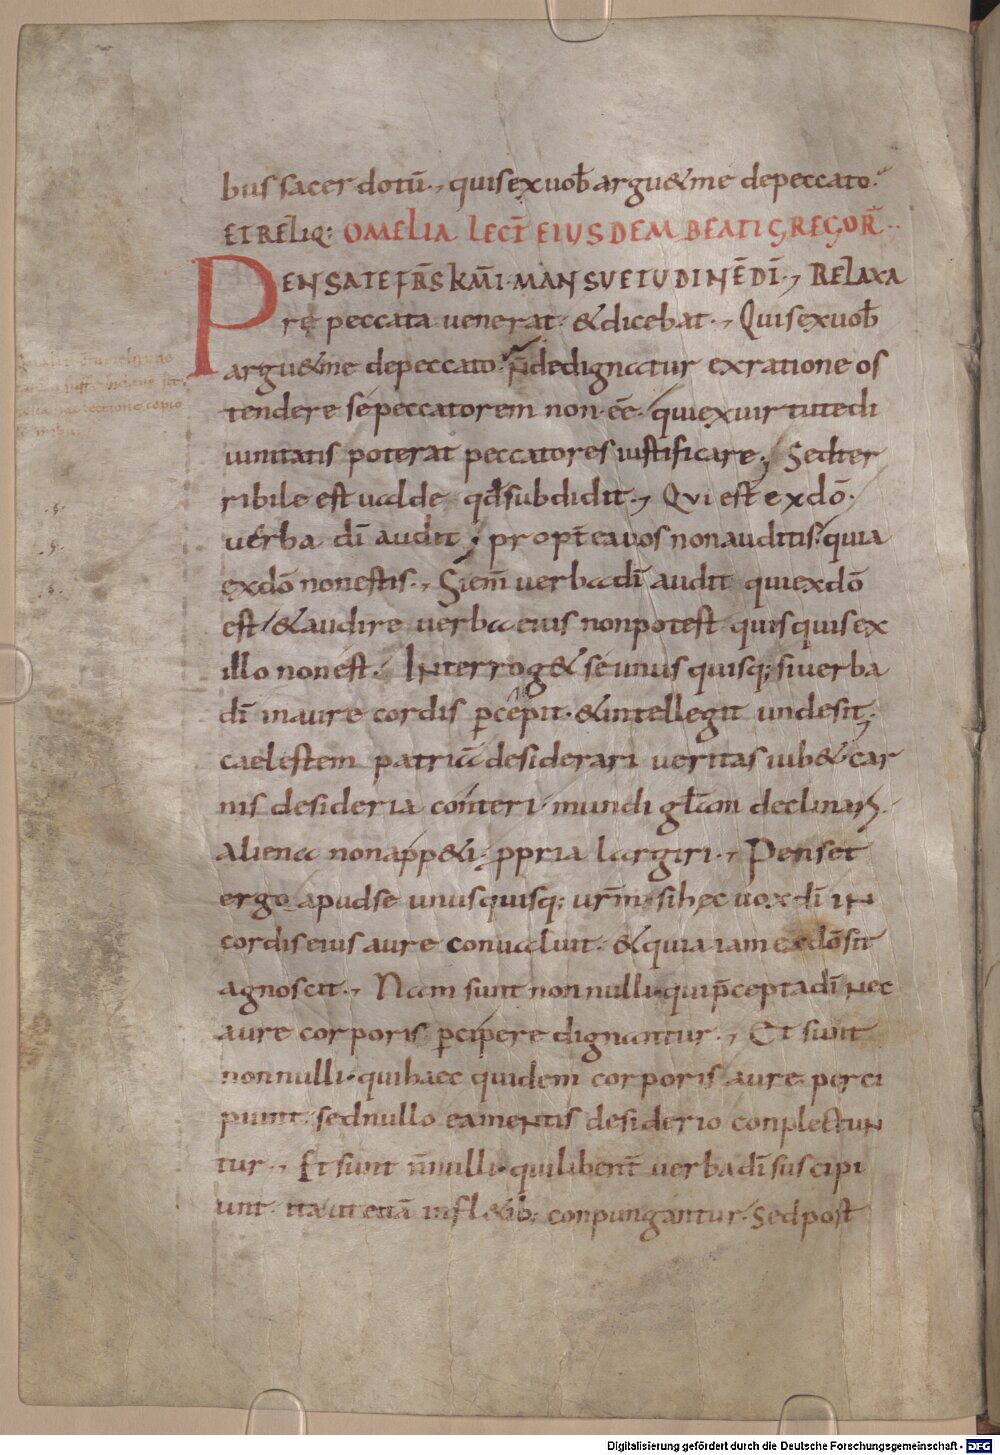 bus sacerdotū., quis ex uob̄ argu&me depeccato.
ET RELIQ: OMELIA LECT̄ EIUSDEM BEATI GREGOR̄.
PENSATE FR̄S KM̄I· MANSUETUDINĒ DĪ., RELAXA
rę peccata uenerat· &dicebat., Quis ex uob̄
argu&me depeccato. n̄ dedignatur ex ratione os
tendere se peccatorem non·ēe· qui ex uirtute di
uinitatis poterat peccatores iustificare; Sed ter
ribile est ualde qd̄ subdidit., Qui est ex dō·
uerba dī audit; propt̄ ea uos non auditis· quia
ex dō non estis., Si em̄ uerba dī audit qui ex dō
est/ & audire uerba eius non potest quisquis ex
illo non est. Interrog& se unusquisq; si uerba
dī in aure cordis p̲cepit·& intellegit unde sit;
caelestem patriā desiderari ueritas iub&· car
nis desideria conteri· mundi gl̄am declinari
aliena non app&i· ppria largiri., Penset
ergo apud se unusquisq; ur̄m· si hęc uox dī in
cordis eius aure conualuit· & quia iam ex dō sit
agnoscit., Nam sunt nonnulli· qui p̄cepta dī nec
aure corporis p̲cipere dignantur., Et sunt
nonnulli· qui haec quidem corporis aure perci
piunt· sed nullo ea mentis desiderio conplectun
tur., Et sunt n̄nulli· qui libent̄ uerba dī suscipi
unt· ita ut etiā in fl&ib; conpungantur· Sed post
Digitalisierung gefördert durch die Deutsche Forschungsgemeinschaft - DFG